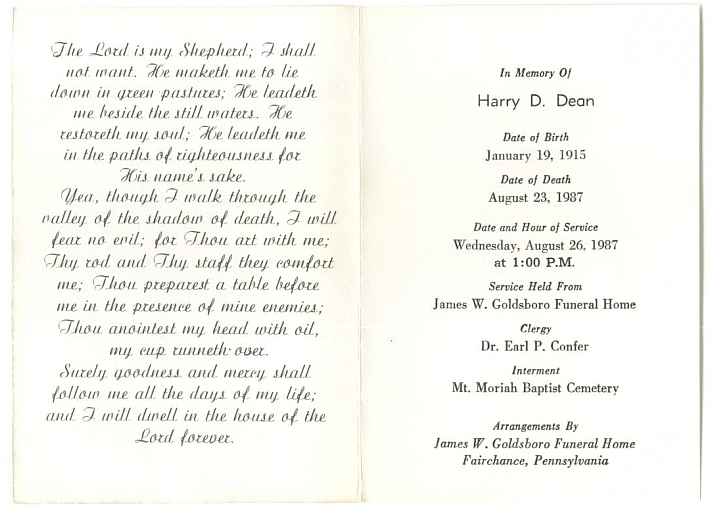 The Lord is my Shepherd; I shall
not want. He maketh me to lie
down in green pastures; He leadeth
me beside the still waters. He
restoreth my soul; He leadeth me
in the paths of righteousness for
His name's sake.
Yea, though I walk through the
valley of the shadow of death, I will
fear no evil; for Thou art with me;
Thy rod and Thy staff they comfort
me; Thou preparest a table before
me in the presence of mine enemies;
Thou anointest my head with oil,
my cup runneth over.
Surely goodness and mercy shall
follow me all the days of my life;
and I will dwell in the house of the
Lord forever.
In Memory Of
Harry D. Dean
Date of Birth
January 19, 1915
Date of Death
August 23, 1987
Date and Hour of Service
Wednesday, August 26, 1987
at 1:00 P.M.
Service Held From
James W. Goldsboro Funeral Home
Clergy
Dr. Earl P. Confer
Interment
Mt. Moriah Baptist Cemetery
Arrangements By
James W. Goldsboro Funeral Home
Fairchance, Pennsylvania